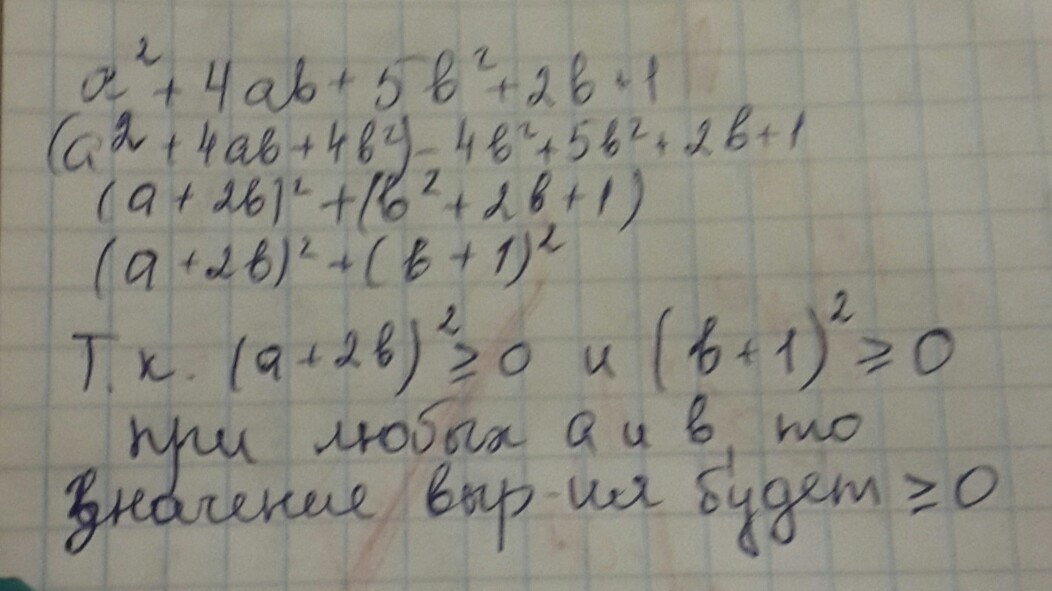 a² + 4ab + 5b² + 2b + 1
(a² + 4ab + 4b²) - 4b² + 5b² + 2b + 1
(a + 2b)² + (b² + 2b + 1)
(a + 2b)² + (b + 1)²
Т.к. (a + 2b)² ≥ 0 и (b + 1)² ≥ 0
при любых а и в, то
значение выр-ия будет ≥ 0